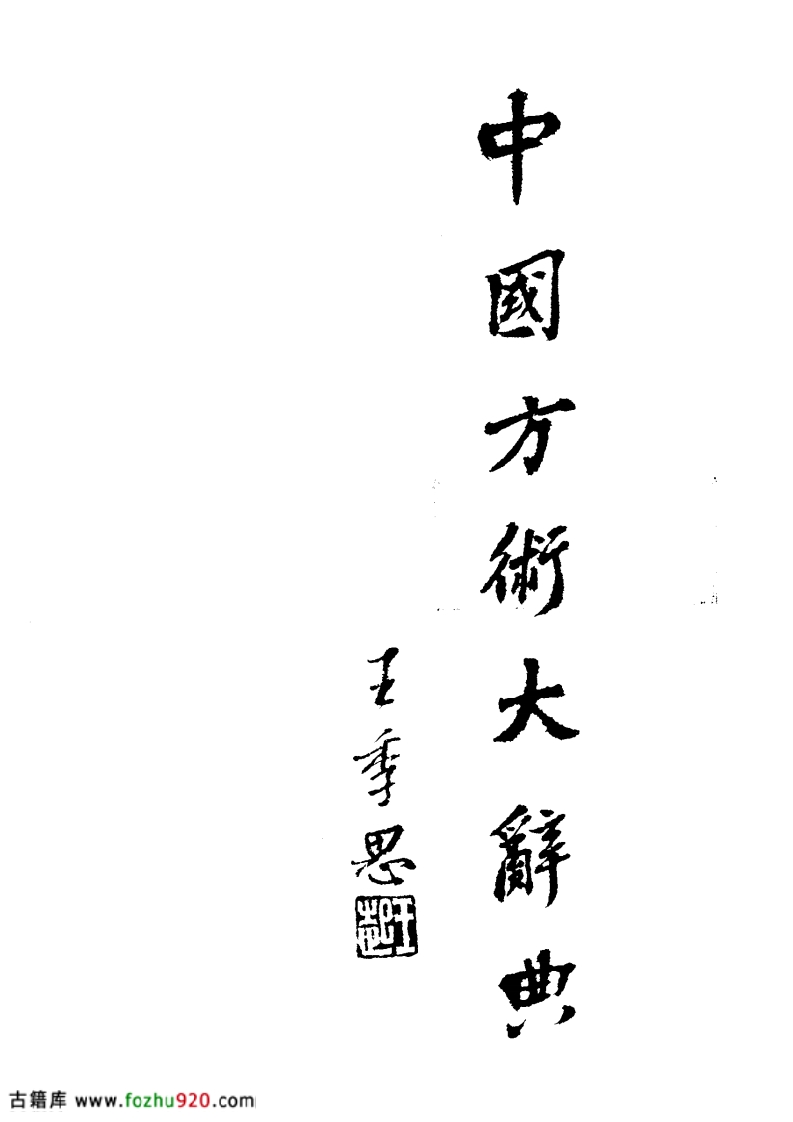 中國方術大辭典
王季思
古籍库 www.fozhu920.com